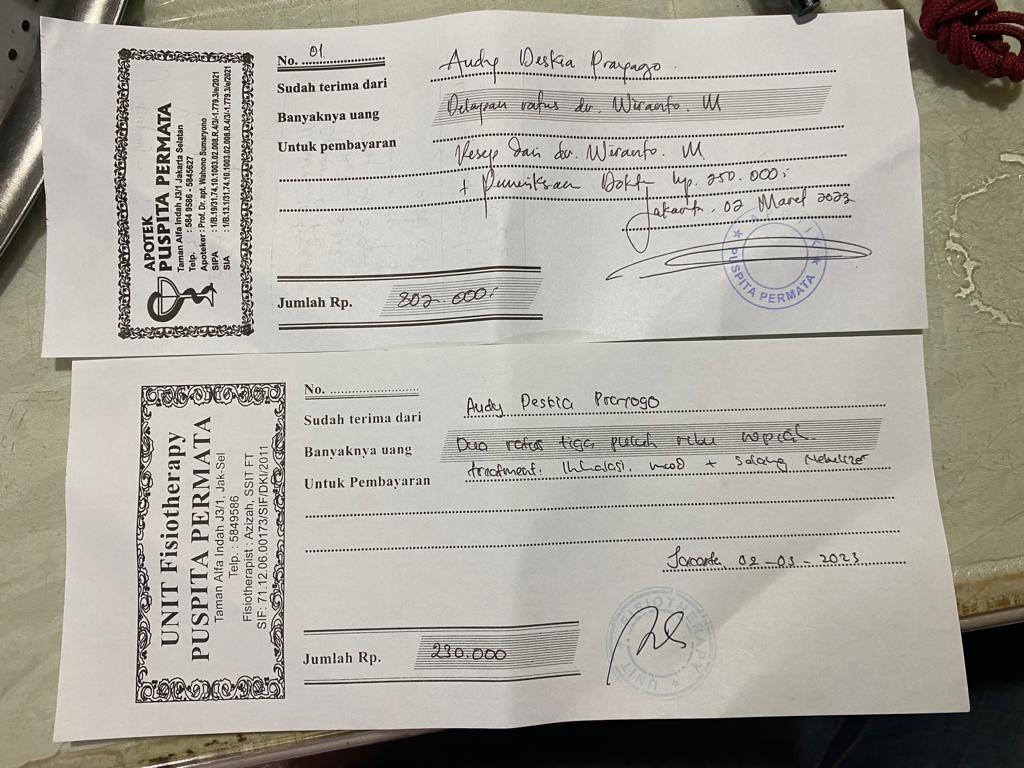 APOTEK
PUSPITA PERMATA
Taman Alfa Indah J3/1 Jakarta Selatan
Telp. : 584 9586 - 5845627
Apoteker : Prof. Dr. apt. Wahono Sumaryono
SIPA : 1/B.19/31.74.10.1003.02.008.R.4/3/-1.779.3/e/2021
SIA : 1/B.13.1/31.74.10.1003.02.008.R.4/3/-1.779.3/e/2021
No. 01
Sudah terima dari Audy Deskia Prayogo
Banyaknya uang Delapan ratus dr. Wiranto. M
Untuk pembayaran Resep dari dr. Wiranto. M
+ Pemeriksaan Dokter Rp. 250.000
Jakarta. 02 Maret 2023
Jumlah Rp. 802.000
PUSPITA PERMATA
UNIT Fisiotherapy
PUSPITA PERMATA
Taman Alfa Indah J3/1, Jak-Sel
Telp. : 5849586
Fisiotherapist : Azizah, SSIT FT
SIF: 71.12.06.00173/SIF/DKI/2011
No.
Sudah terima dari Audy Deskia Prayogo
Banyaknya uang Dua ratus tiga puluh ribu rupiah.
Untuk Pembayaran treatment: Inhalasi, mwd + selang Nebulizer
Jakarta 02-03-2023
Jumlah Rp. 230.000
UNIT FISIOTERAPY